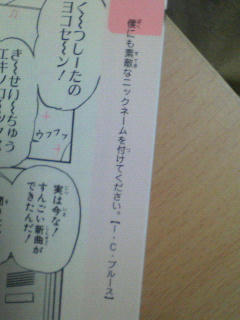 僕にも素敵なニックネームを付けてください。【I・C・ブルース】
く〜つしーたの
ヨコセ〜ン！
き〜せい〜ちゅう
ウフフッ
実は今な！
すんごい新曲が
できたんだ！